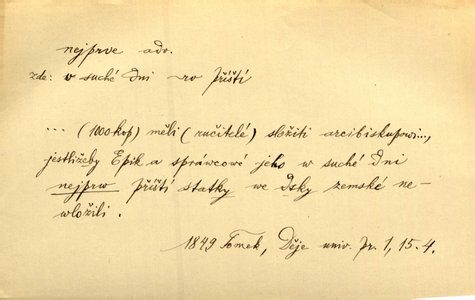 nejprve adv.
zde: v suché dni ~ příští
... (1000 kop) měli (ručitelé) složiti arcibiskupowi...,
jestližeby Epik a správcowé jeho w suché dni
nejprw příští statky we dsky zemské ne-
wložili.
1849 Tomek, Děje univ. Pr. 1, 15-4.